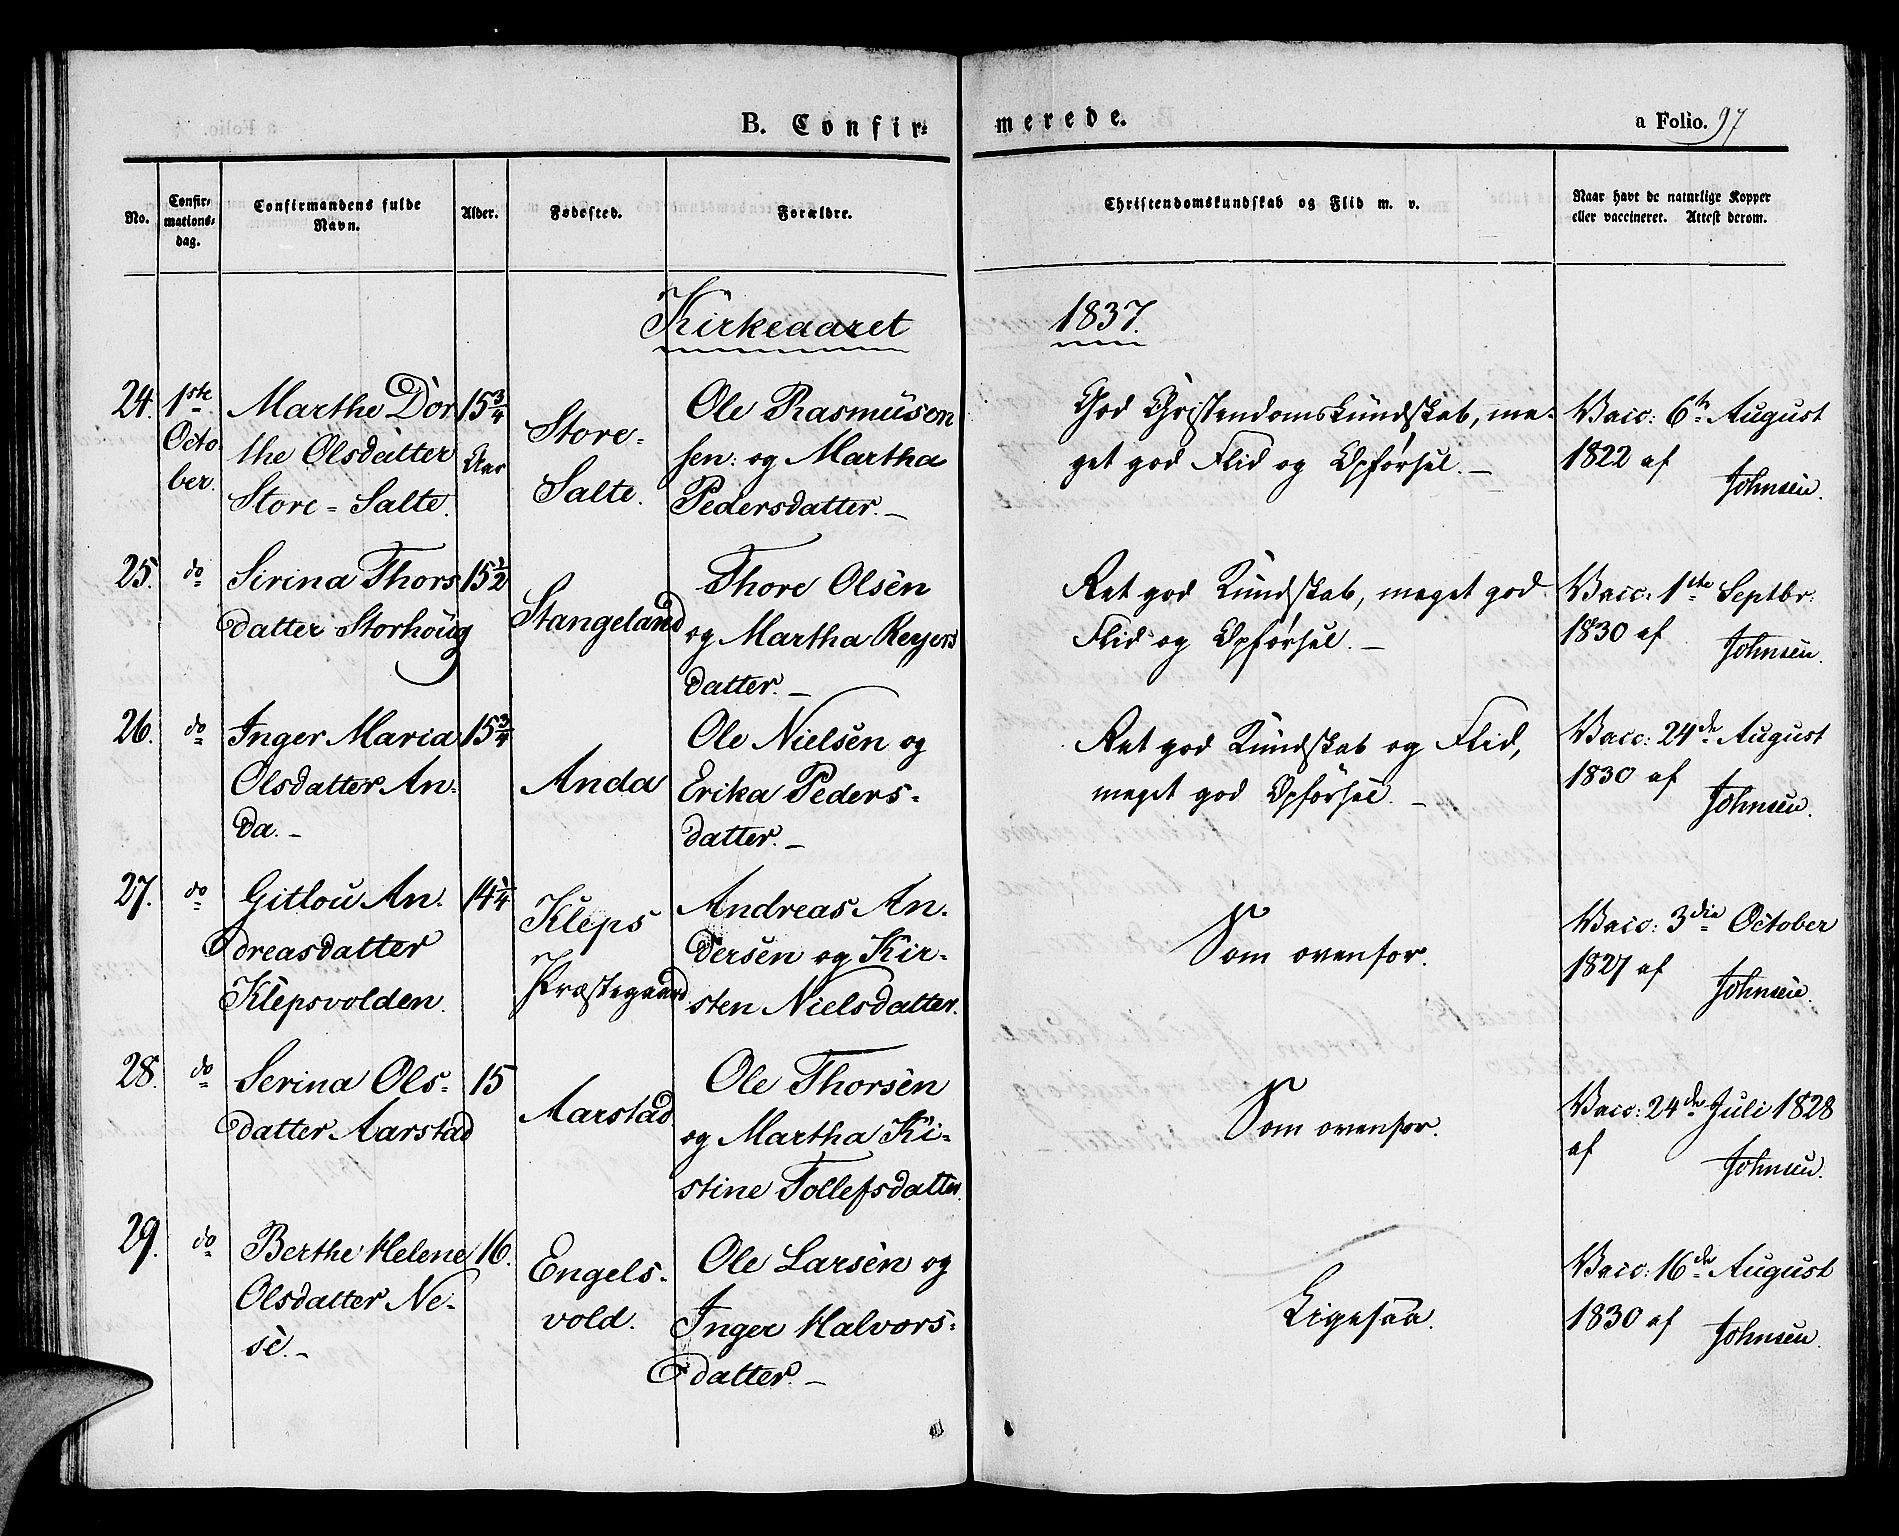 B. Confir-
merede.
a Folio. 97
No.
Confir-
mations-
dag.
Confirmandens fulde
Navn.
Alder.
Fødested.
Forældre.
Christendomskundskab og Flid m. v.
Naar havt de naturlige Kopper
eller vaccineret. Attest derom.
Kirkeaaret
1837.
24.
1ste
Octo-
ber.
Marthe Dor
the Olsdatter
Store-Salte.
15 3/4
Aar
Store-
Salte.
Ole Rasmusen
sen: og Martha
Pedersdatter. –
God Christendomskundskab, me-
get god Flid og Opførsel. –
Vacc: 6te August
1822 af
Johnsen.
25.
do
Sirina Thors
datter Storhoug
15 1/2
Stangeland
Thore Olsen
og Martha Reyers
datter. –
Ret god Kundskab, meget god
Flid og Opførsel. –
Vacc: 1ste Septbr:
1830 af
Johnsen.
26.
do
Inger Maria
Olsdatter An-
da. –
15 3/4
Anda
Ole Nielsen og
Erika Peders-
datter. –
Ret god Kundskab og Flid,
meget god Opførsel. –
Vacc: 24de August
1830 af
Johnsen.
27.
do
Gitlou An-
dreasdatter
Klepsvolden.
14 1/4
Kleps
Præstegaard
Andreas An-
dersen og Kir-
sten Nielsdatter.
Som ovenfor.
Vacc: 3die October
1827 af
Johnsen.
28.
do
Serina Ols-
datter Aarstad
15
Aarstad
Ole Thorsen
og Martha Ki-
stine Tollefsdatter.
Som ovenfor.
Vacc: 24de Juli 1828
af
Johnsen.
29.
do
Berthe Helene
Olsdatter Ne-
se. –
16.
Engels-
vold.
Ole Larsen og
Inger Halvors-
datter. –
Ligesaa.
Vacc: 16de August
1830 af
Johnsen.